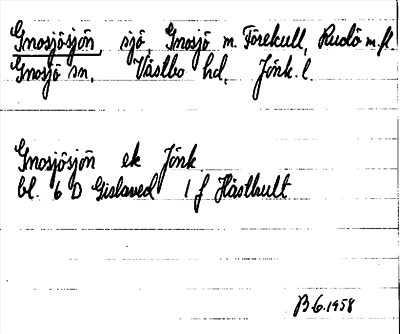 Gnosjösjön, sjö, Gnosjö m. Törekull, Rudö m.fl.
Gnosjö sn, Västbo hd, Jönk. l.
Gnosjösjön ek Jönk.
bl. 6 D Gislaved 1 f Hästhult
B 6.1958